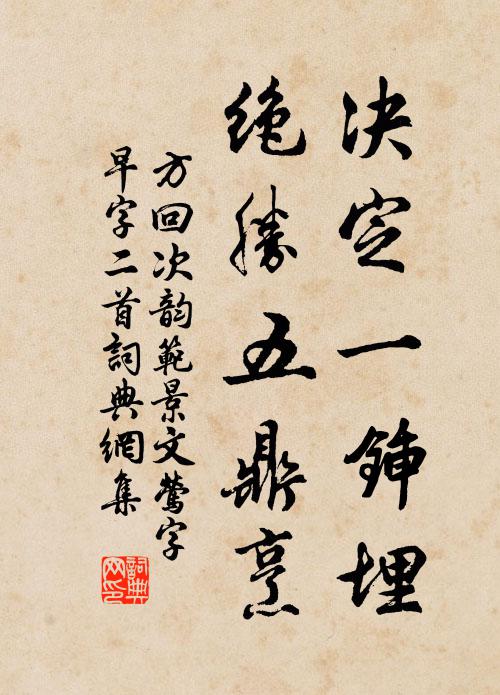 决定一鍤埋
绝勝五鼎烹
方回次韵範景文鶯字
早字二首詞典網集
詞典网印